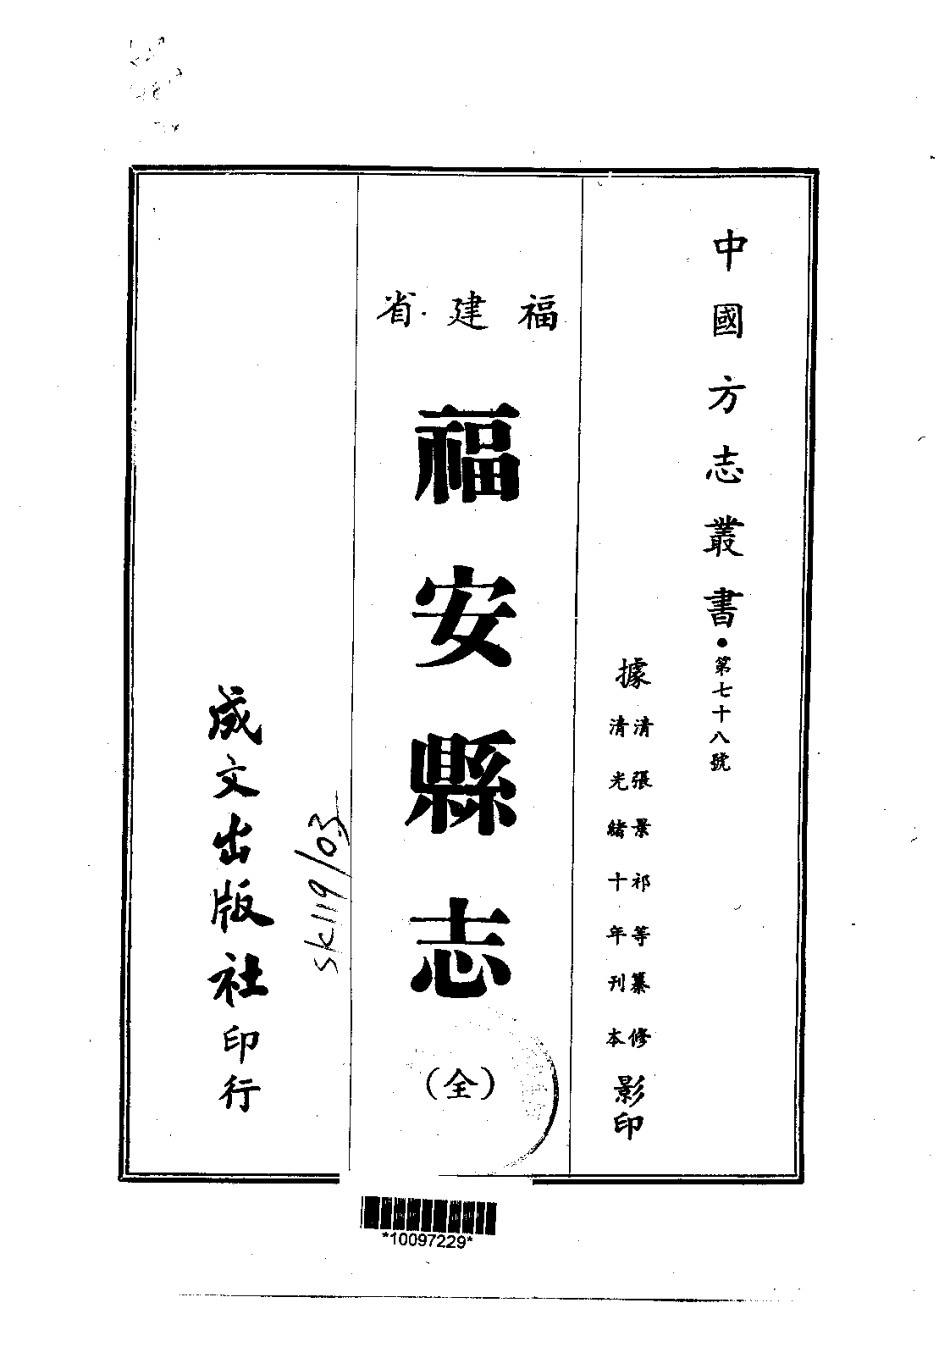 中國方志叢書•第七十八號
據
清張景祁等纂修
清光緒十年刊本
影印
福建省
福安縣志
(全)
sk119/03
成文出版社印行
*10097229*